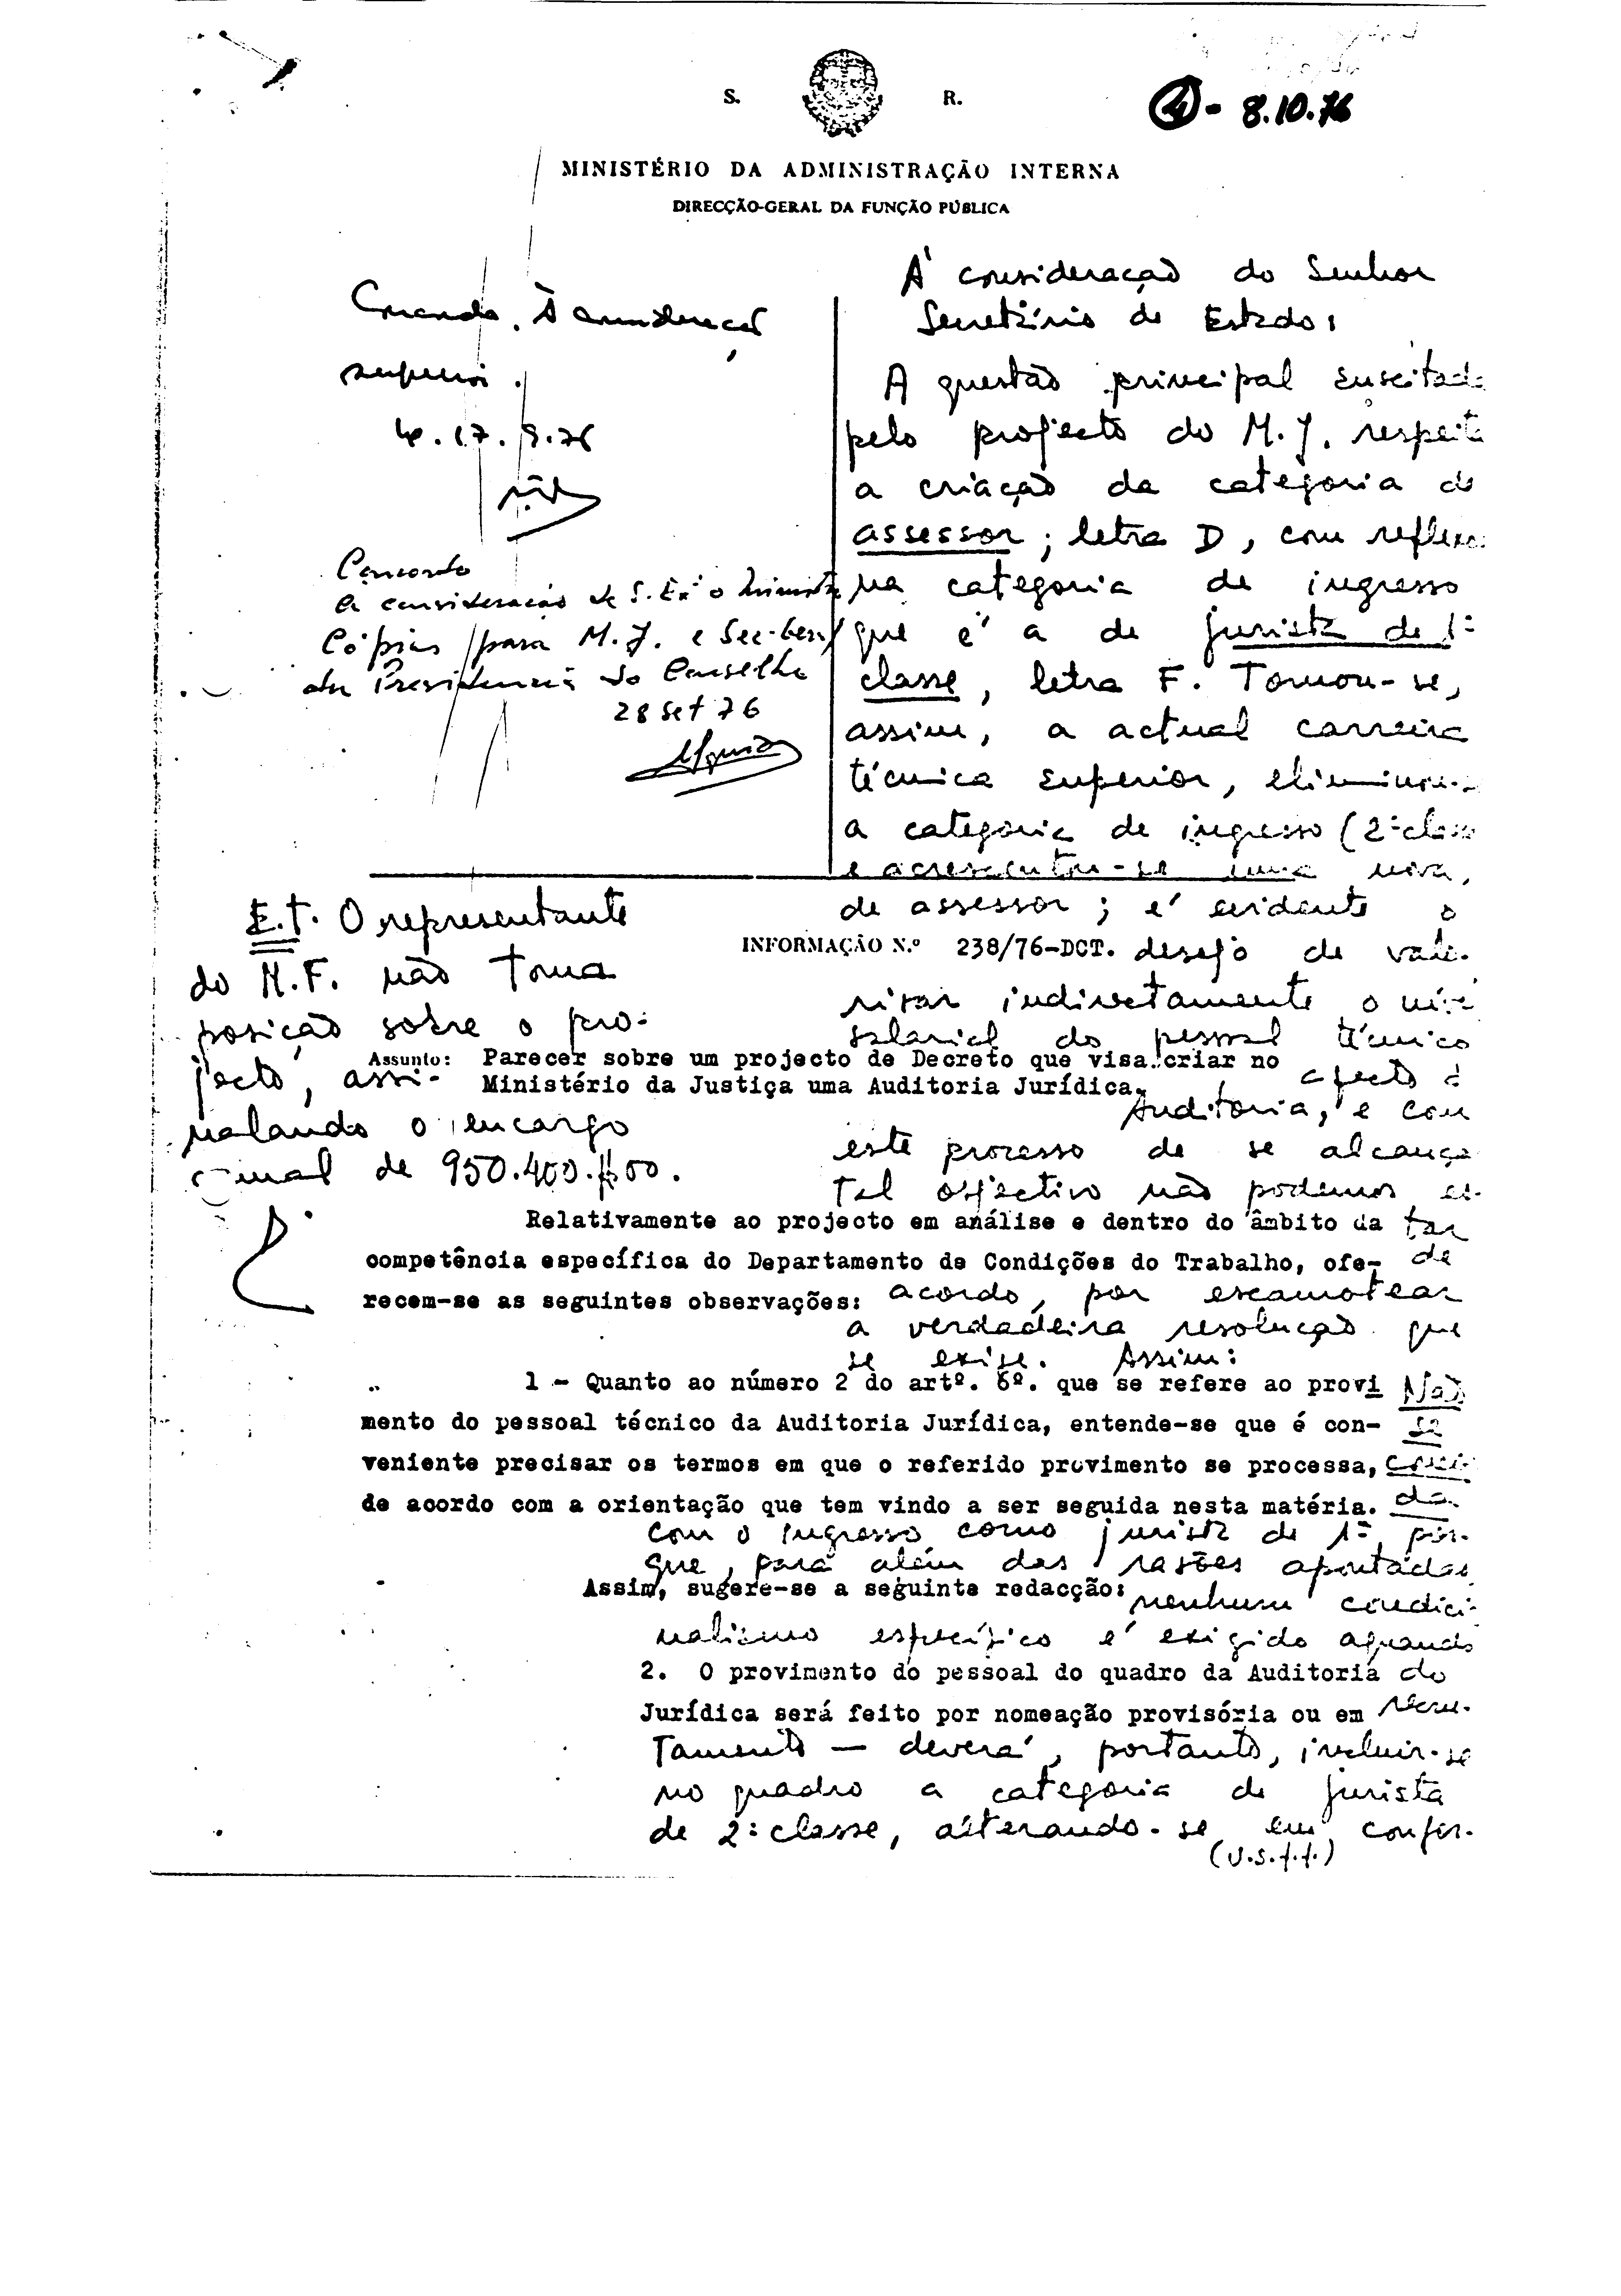 S. R.
4 - 8.10.76
MINISTÉRIO DA ADMINISTRAÇÃO INTERNA
DIRECÇÃO-GERAL DA FUNÇÃO PÚBLICA
Concordo. À consideração
superior.
17.9.76
Concordo
À consideração de S. Exª o Ministro
Cópias para M.J. e Sec-Geral
da Presidência do Conselho
28 Set 76
À consideração do Senhor
Secretário de Estado:
A questão principal suscitada
pelo projecto do M.J. respeita
a criação da categoria de
assessor; letra D, com reflexo
na categoria de ingresso
que é a de jurista de 1ª
classe, letra F. Tomou-se,
assim, a actual carreira
técnica superior, eliminou-se
a categoria de ingresso (2ª classe
e acrescentou-se uma nova,
de assessor; é evidente o
desejo de valo-
rizar indirectamente o nível
salarial do pessoal técnico
afecto à
Auditoria, e com
este processo de se alcançar
tal objectivo não podemos es-
tar
de
acordo, por escamotear
a verdadeira resolução que
se exige. Assim:
E.T. O representante
do M.F. não toma
posição sobre o pro-
jecto, assi-
nalando o encargo
anual de 950.400$00.
INFORMAÇÃO N.º 238/76-DCT.
Assunto: Parecer sobre um projecto de Decreto que visa criar no
Ministério da Justiça uma Auditoria Jurídica.
Relativamente ao projecto em análise e dentro do âmbito da
competência específica do Departamento de Condições do Trabalho, ofe-
recem-se as seguintes observações:
1 - Quanto ao número 2 do artº. 6º. que se refere ao provi
mento do pessoal técnico da Auditoria Jurídica, entende-se que é con-
veniente precisar os termos em que o referido provimento se processa,
de acordo com a orientação que tem vindo a ser seguida nesta matéria.
Não
se
concor-
da
com o ingresso como jurista de 1ª, por-
que, para além das razões apontadas
Assim, sugere-se a seguinte redacção:
nenhum condicio-
nalismo específico é exigido aquando
do
recru-
2. O provimento do pessoal do quadro da Auditoria
Jurídica será feito por nomeação provisória ou em
tamento — deverá, portanto, incluir-se
no quadro a categoria de jurista
de 2ª classe, alterando-se em confor-
(V.S.f.f.)